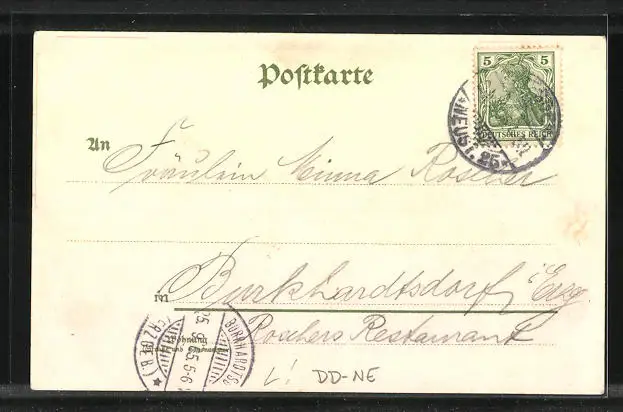 Postkarte
5 5
DEUTSCHES REICH
NEUST.
25
An Fräulein Minna Roscher
in Burkhardtsdorf Erzg
Roschers Restaurant
Wohnung
BURKHARDTSD
(ERZGEB.)
5-6
L! DD-NE